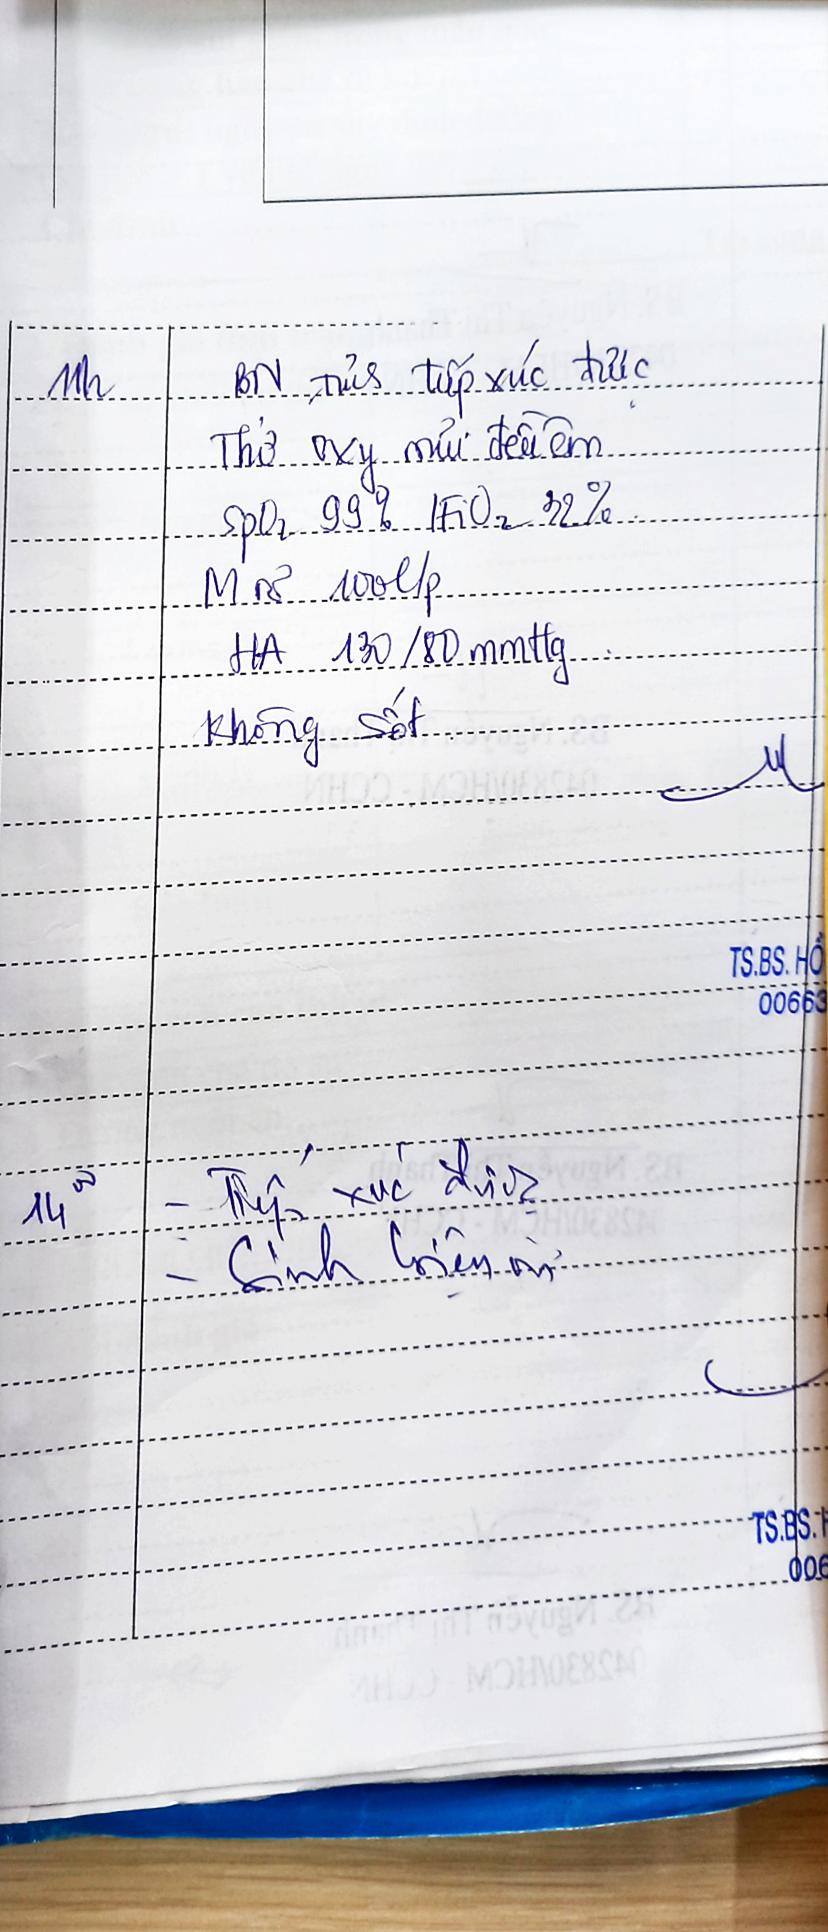 11h
BN tỉnh tiếp xúc được
Thở oxy mũi đều êm
SpO₂ 99% /FiO₂ 32%
M rõ 100l/p
HA 130/80 mmHg
Không sốt
TS.BS. HỒ
00663
14⁰⁰
- Tiếp xúc được
- Sinh hiệu ổn
TS.BS. H
006